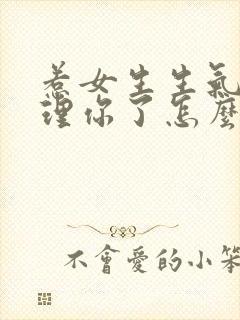 惹女生生氣
理你了怎麼
不會愛的小笨